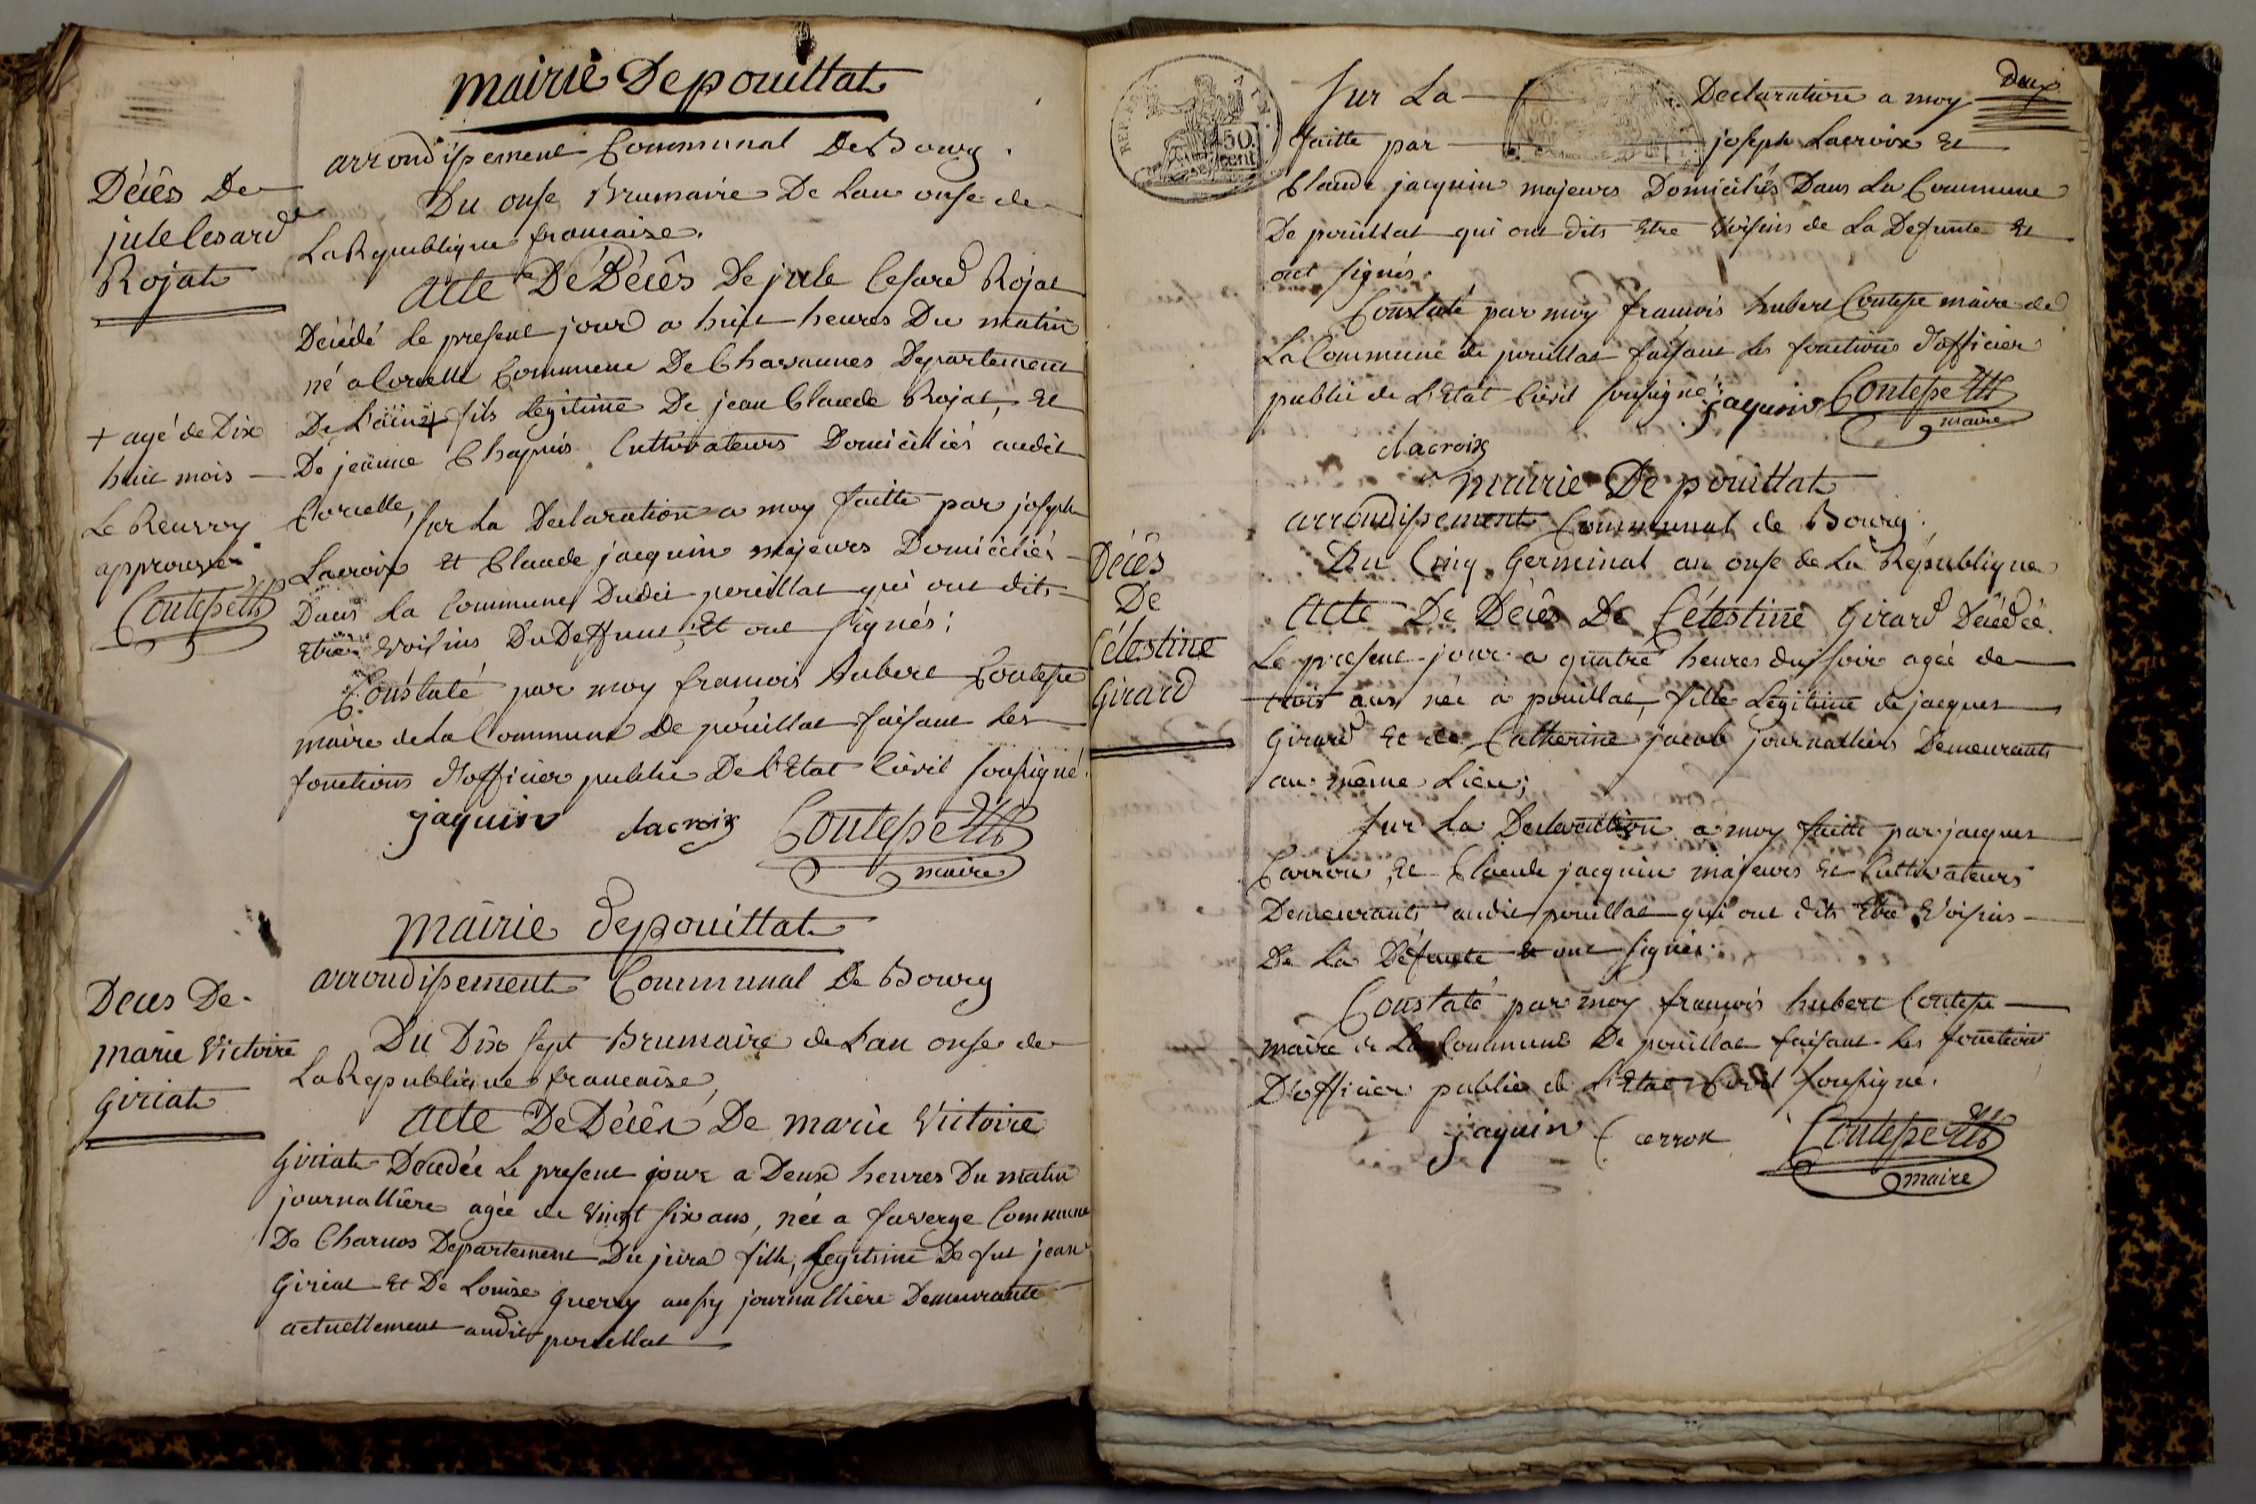 mairie De pouillat
arrondissement Communal De Bourg.
Du onse Brumaire De Lan onse de
La Republique francaise.
Décès De
jule Cesard
Rojat
acte De Décès De jule Cesard Rojat
Décédé Le present jour a huit heures Du matin
né a Corcelle Commune De Chavannes Departement
De L'ain + fils Legitime De jean Claude Rojat, Et
+ agé de Dix
huit mois
Le Renvoy
approuvé
Coutepe
De jeanne Chapuis Cultivateurs Domiciliés audit
Corcelle, sur La Declaration a moy faitte par joseph
Lacroix et Claude jacquin majeurs Domiciliés
Dans La Commune Dudit pouillat qui ont dits
Etre voisins Du Deffunt, Et ont signés;
Constaté par moy francois hubert Coutepe
maire de La Commune De pouillat faisant Les
fonctions d'officier public De l'Etat Civil soussigné.
jaquin Lacroix Coutepe
maire
mairie de pouillat
arrondissement Communal De Bourg
Deces De
marie Victoire
Giriat
Du Dix sept Brumaire de Lan onse de
La Republique francaise,
acte De Décès De marie Victoire
Giriat Decedée Le present jour a Deux heures Du matin
journalliére agée de vingt six ans, née a faverge Commune
De Charnos Departement Du jura fille, Legitime De fut jean
Giriat Et De Louise Guerry aussy journalliere Demeurante
actuellement audit pouillat
Deux
REP. FRA.
50.
cent.
Sur La Declaration a moy
faitte par joseph Lacroix Et
Claude jacquin majeurs Domiciliés Dans La Commune
De pouillat qui ont dits Etre Voisins de La Defunte Et
ont signés.
Constaté par moy francois hubert Coutepe maire de
La Commune de pouillat faisant les fonctions d'officier
public de L'Etat Civil soussigné;
jaquin Coutepe
maire
Lacroix
mairie De pouillat
arrondissement Communal de Bourg.
Du Cinq Germinal an onse de La République
Décès
De
Célestine
Girard
acte De Décès De Célestine Girard Décédée
Le present jour a quatre heures du soir agée de
trois ans née à pouillat, fille Legitime de jacques
Girard Et de Catherine jacob journalliers Demeurants
au même Lieu;
Sur La Declaration a moy faitte par jacques
Carron, Et Claude jacquin majeurs Et Cultivateurs
Demeurants audit pouillat qui ont dits Etre Voisins
De La Défunte Et ont signés.
Constaté par moy francois hubert Coutepe
maire de La Commune De pouillat faisant Les fonctions
D'officier public de L'Etat Civil soussigné.
jaquin Carron Coutepe
maire